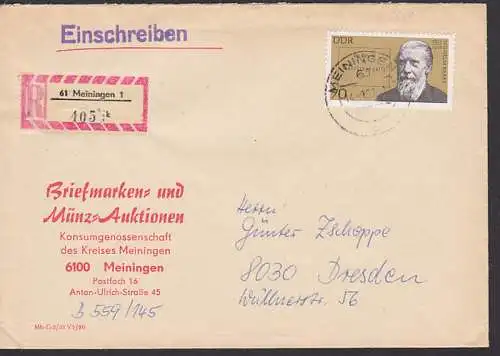 Einschreiben
DDR
70
MEININGEN
61
61 Meiningen 1
R
405
Briefmarken- und
Münz-Auktionen
Konsumgenossenschaft
des Kreises Meiningen
6100 Meiningen
Postfach 16
Anton-Ulrich-Straße 45
B 559/145
Herrn
Günter Zschoppe
8030 Dresden
Wüllnerstr. 56